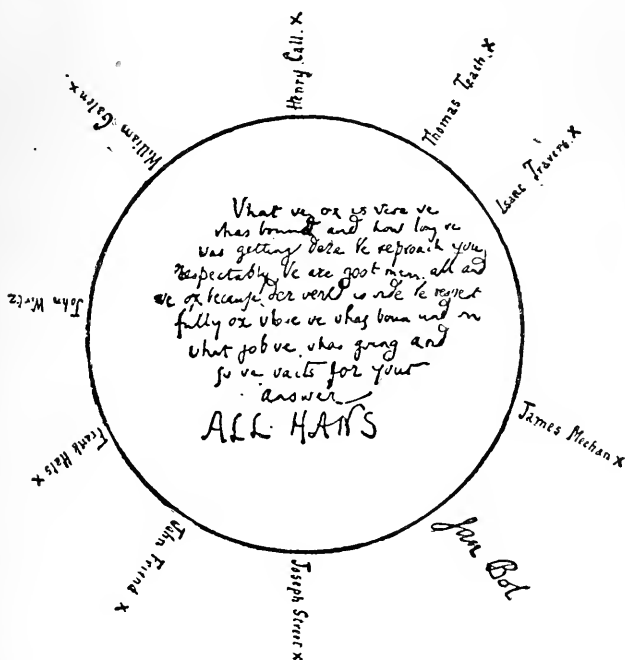 Henry Call. x
Thomas Teach. x
Isaac Travers. x
James Meehan x
Jan Bol
Joseph Street x
John Friend x
Frank Hals x
John Wirtz
William Galen x.
Vhat ve ox is vere ve
vhas bound and how long ve
vas getting dere Ve reproach you
respectably Ve are gost men. all and
ve ox because der verld is vide Ve respect
fully ox vhere ve vhas boun und on
vhat job ve vhas going and
so ve vaits for your
answer
ALL HANS